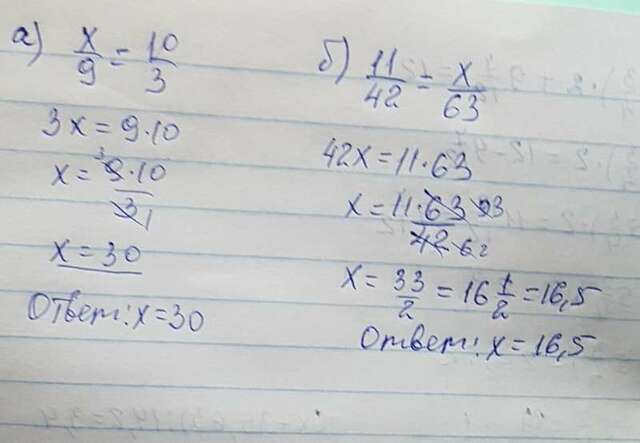 а) x/9 = 10/3
3x = 9·10
x = 9·10/3 3 1
x = 30
Ответ: x = 30
б) 11/42 = x/63
42x = 11·63
x = 11·63/42 9 3 6 2
x = 33/2 = 16 1/2 = 16,5
Ответ: x = 16,5